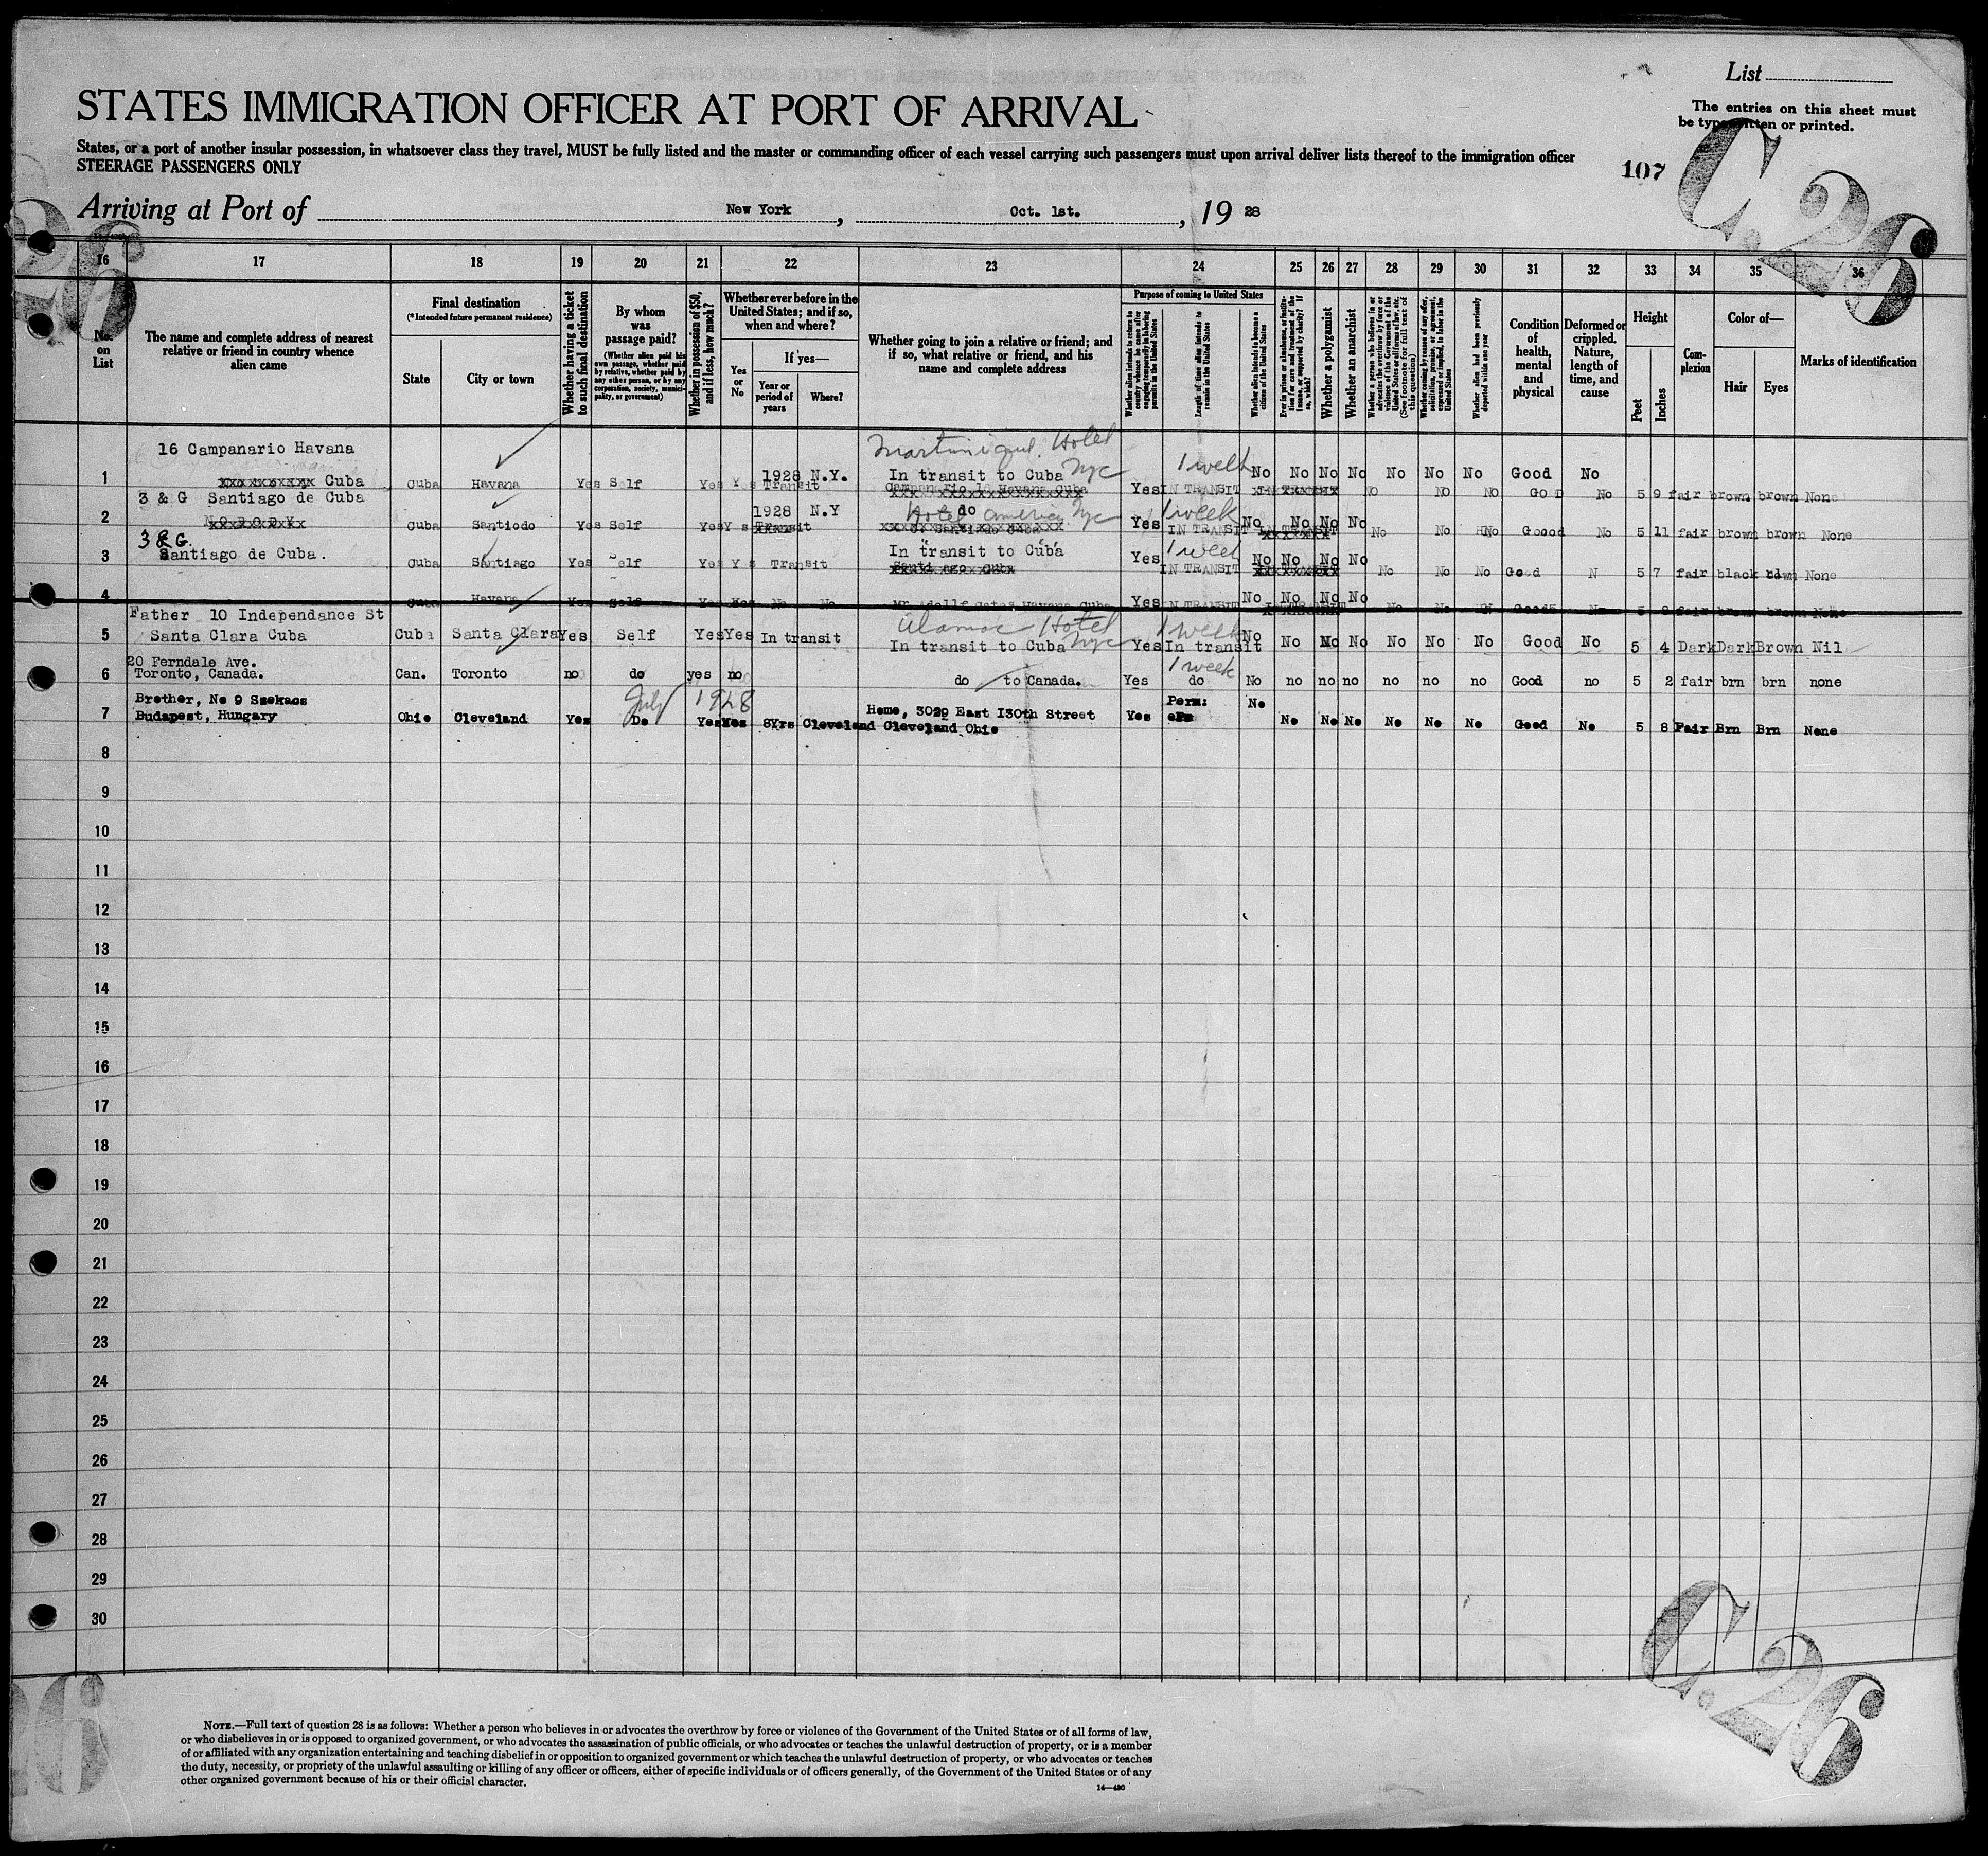 List
STATES IMMIGRATION OFFICER AT PORT OF ARRIVAL
The entries on this sheet must
be typewritten or printed.
States, or a port of another insular possession, in whatsoever class they travel, MUST be fully listed and the master or commanding officer of each vessel carrying such passengers must upon arrival deliver lists thereof to the immigration officer
STEERAGE PASSENGERS ONLY
107
C. 26
26
Arriving at Port of New York, Oct. 1st., 19 28
16 17 18 19 20 21 22 23 24 25 26 27 28 29 30 31 32 33 34 35 36
No. on List
The name and complete address of nearest relative or friend in country whence alien came
Final destination
(*Intended future permanent residence)
State
City or town
Whether having a ticket to such final destination
By whom was passage paid?
(Whether alien paid his own passage, whether paid by relative, whether paid by any other person, or by any corporation, society, municipality, or government)
Whether in possession of $50, and if less, how much?
Whether ever before in the United States; and if so, when and where?
Yes or No
If yes—
Year or period of years
Where?
Whether going to join a relative or friend; and if so, what relative or friend, and his name and complete address
Purpose of coming to United States
Whether alien intends to return to country whence he came after engaging temporarily in laboring pursuits in the United States
Length of time alien intends to remain in the United States
Whether alien intends to become a citizen of the United States
Ever in prison or almshouse, or institution for care and treatment of the insane, or supported by charity? If so, which?
Whether a polygamist
Whether an anarchist
Whether a person who believes in or advocates the overthrow by force or violence of the Government of the United States or all forms of law, etc. (See footnote for full text of this question)
Whether coming by reason of any offer, solicitation, promise, or agreement, expressed or implied, to labor in the United States
Whether alien had been previously deported within one year
Condition of health, mental and physical
Deformed or crippled. Nature, length of time, and cause
Height
Feet
Inches
Complexion
Color of—
Hair
Eyes
Marks of identification
16 Campanario Havana
Martinique Hotel
1 Cuba Cuba Havana Yes Self Yes 1928 N.Y. Transit In transit to Cuba Nyc Yes 1 week IN TRANSIT No No No No No No No Good No 5 9 fair brown brown None
3 & G Santiago de Cuba
2 Cuba Santiodo Yes Self Yes 1928 N.Y Transit do Hotel America Nyc Yes 1 week IN TRANSIT No No No No No No No Goood No 5 11 fair brown brown None
3 & G.
3 Santiago de Cuba. Cuba Santiago Yes elf Yes Transit In transit to Cuba Yes 1 week IN TRANSIT No No No No No No No Good N 5 7 fair black None
4 Cuba Havana Yes Self Yes Yes No No Havana Cuba Yes IN TRANSIT No No No No
Father 10 Independance St
Alamac Hotel
5 Santa Clara Cuba Cuba Santa Clara Yes Self Yes Yes In transit In transit to Cuba Nyc Yes 1 week In transit No No No No No No No Good No 5 4 Dark Dark Brown Nil
20 Ferndale Ave.
6 Toronto, Canada. Can. Toronto no do yes no do to Canada. Yes 1 week do No no no no no no no Good no 5 2 fair brn brn none
Brother, No 9 Szekacs
July 1928
7 Budapest, Hungary Ohio Cleveland Yes Do Yes Yes 8Yrs Cleveland Home, 3029 East 130th Street Cleveland Ohio Yes Perm: No No No No No No No Good No 5 8 Fair Brn Brn None
8
9
10
11
12
13
14
15
16
17
18
19
20
21
22
23
24
25
26
27
28
29
30
C. 26
26
NOTE.—Full text of question 28 is as follows: Whether a person who believes in or advocates the overthrow by force or violence of the Government of the United States or of all forms of law,
or who disbelieves in or is opposed to organized government, or who advocates the assassination of public officials, or who advocates or teaches the unlawful destruction of property, or is a member
of or affiliated with any organization entertaining and teaching disbelief in or opposition to organized government or which teaches the unlawful destruction of property, or who advocates or teaches
the duty, necessity, or propriety of the unlawful assaulting or killing of any officer or officers, either of specific individuals or of officers generally, of the Government of the United States or of any
other organized government because of his or their official character.
14—430